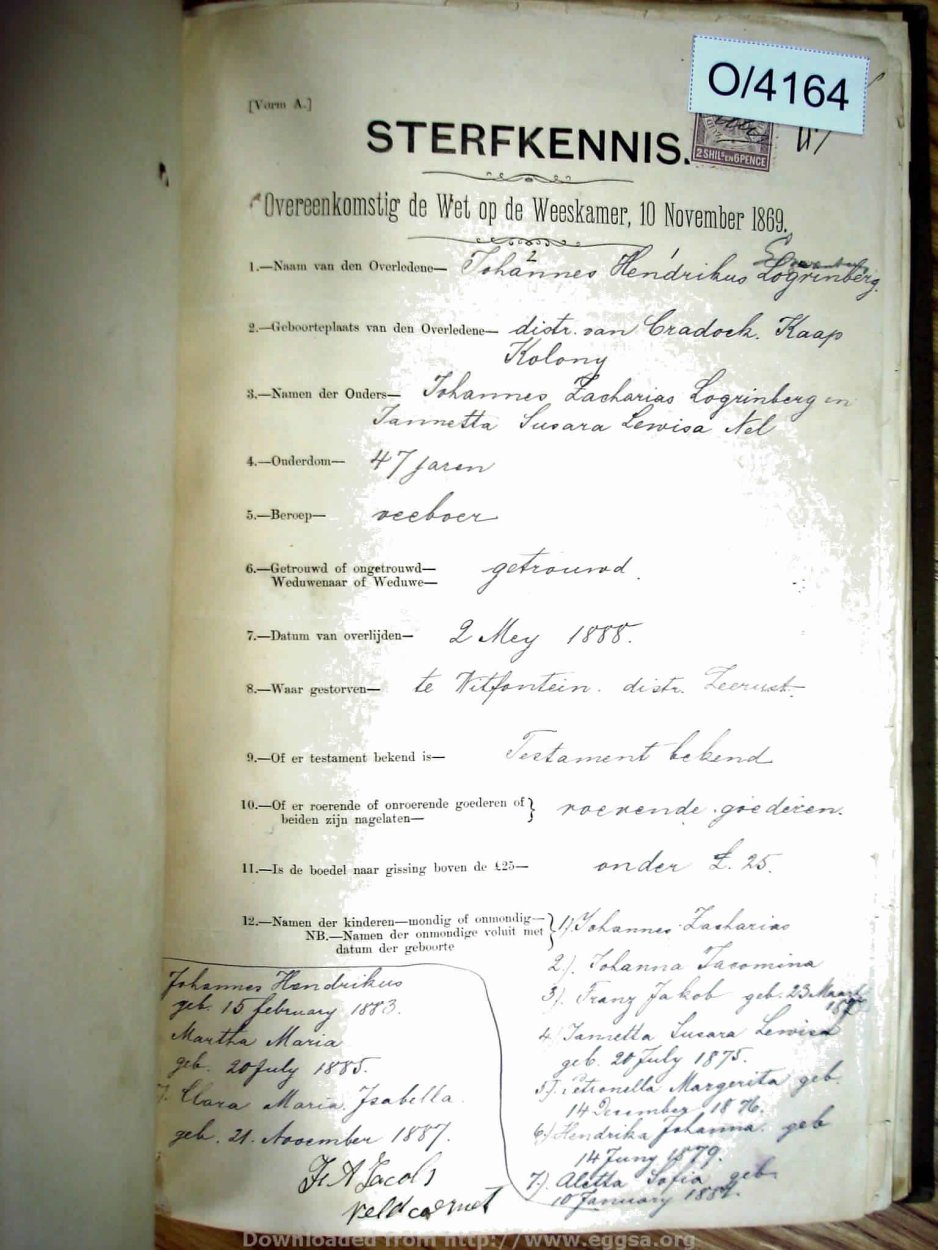 O/4164
[Vorm A.]
STERFKENNIS.
2 SHILS EN 6 PENCE
Overeenkomstig de Wet op de Weeskamer, 10 November 1869.
1.—Naam van den Overledene— Johannes Hendrikus Logrinberg
2.—Geboorteplaats van den Overledene— distr. van Cradock. Kaap
Kolony
3.—Namen der Ouders— Johannes Zacharias Logrinberg en
Jannetta Susara Lewisa Nel
4.—Onderdom— 47 jaren
5.—Beroep— veeboer
6.—Getrouwd of ongetrouwd—
Weduwenaar of Weduwe— getrouwd.
7.—Datum van overlijden— 2 Mey 1888.
8.—Waar gestorven— te Witfontein. distr. Zeerust
9.—Of er testament bekend is— Testament bekend
10.—Of er roerende of onroerende goederen of
beiden zijn nagelaten— roerende goederen.
11.—Is de boedel naar gissing boven de £25— onder £. 25.
12.—Namen der kinderen—mondig of onmondig— 1) Johannes Zacharias
NB.—Namen der onmondige voluit met
datum der geboorte
2). Johanna Jacomina
3). Franz Jakob geb. 23 Maart
4) Jannetta Susara Lewisa
geb. 20 July 1875.
5). Petronella Margerita geb.
14 December 1876.
6) Hendrika Johanna. geb
14 Juny 1879.
7) Aletta Sofia geb
10 January
Johannes Hendrikus
geb. 15 february 1883.
Martha Maria
geb. 20 July 1885.
Clara Maria Isabella.
geb. 21. November 1887.
Jacobs
veldcornet
Downloaded from http://www.eggsa.org